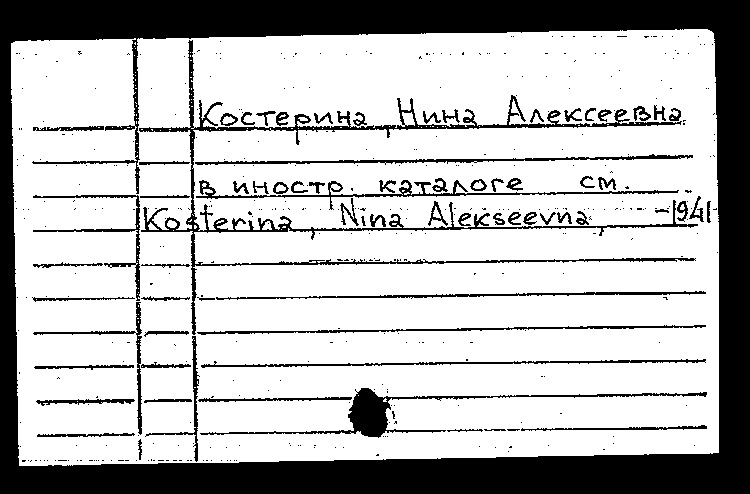 Костерина, Нина Алексеевна
в иностр. каталоге см.
Kosterina, Nina Alekseevna, -1941